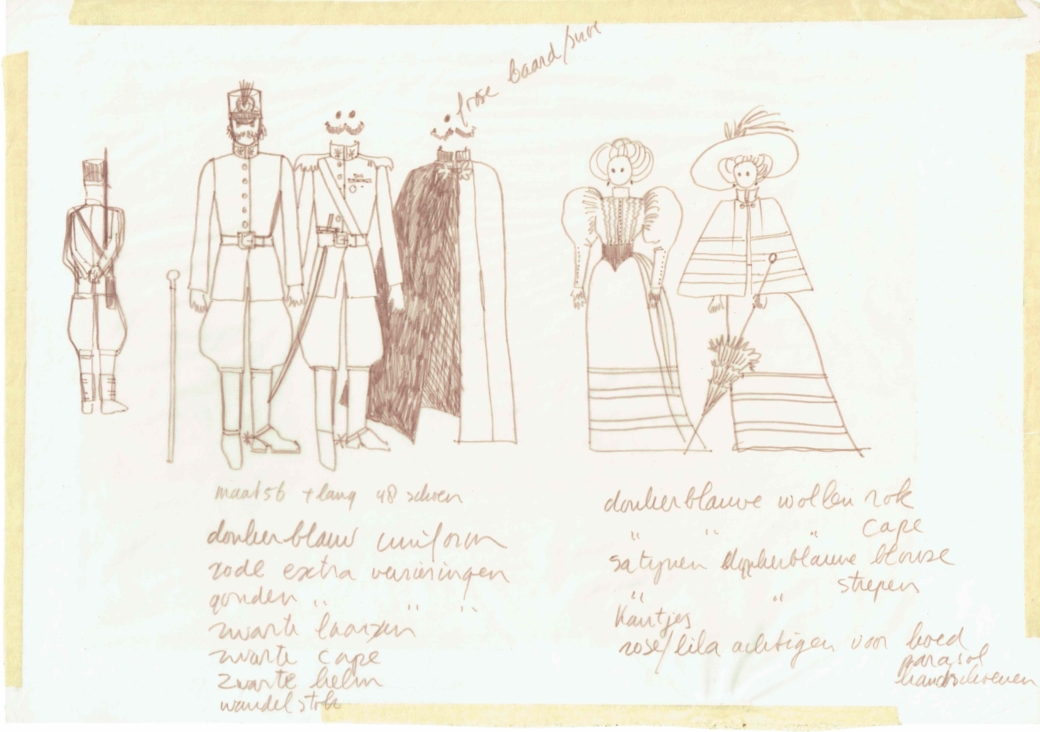 baard/snor
maat 56 + lang 48 schoen
donkerblauw uniform
rode extra versieringen
gouden " " "
zwarte laarzen
zwarte cape
zwarte helm
wandelstok
donkerblauwe wollen rok
" " " cape
satijnen donkerblauwe blouse
" " strepen
kantjes
rose/lila achtigen voor hoed
parasol
handschoenen